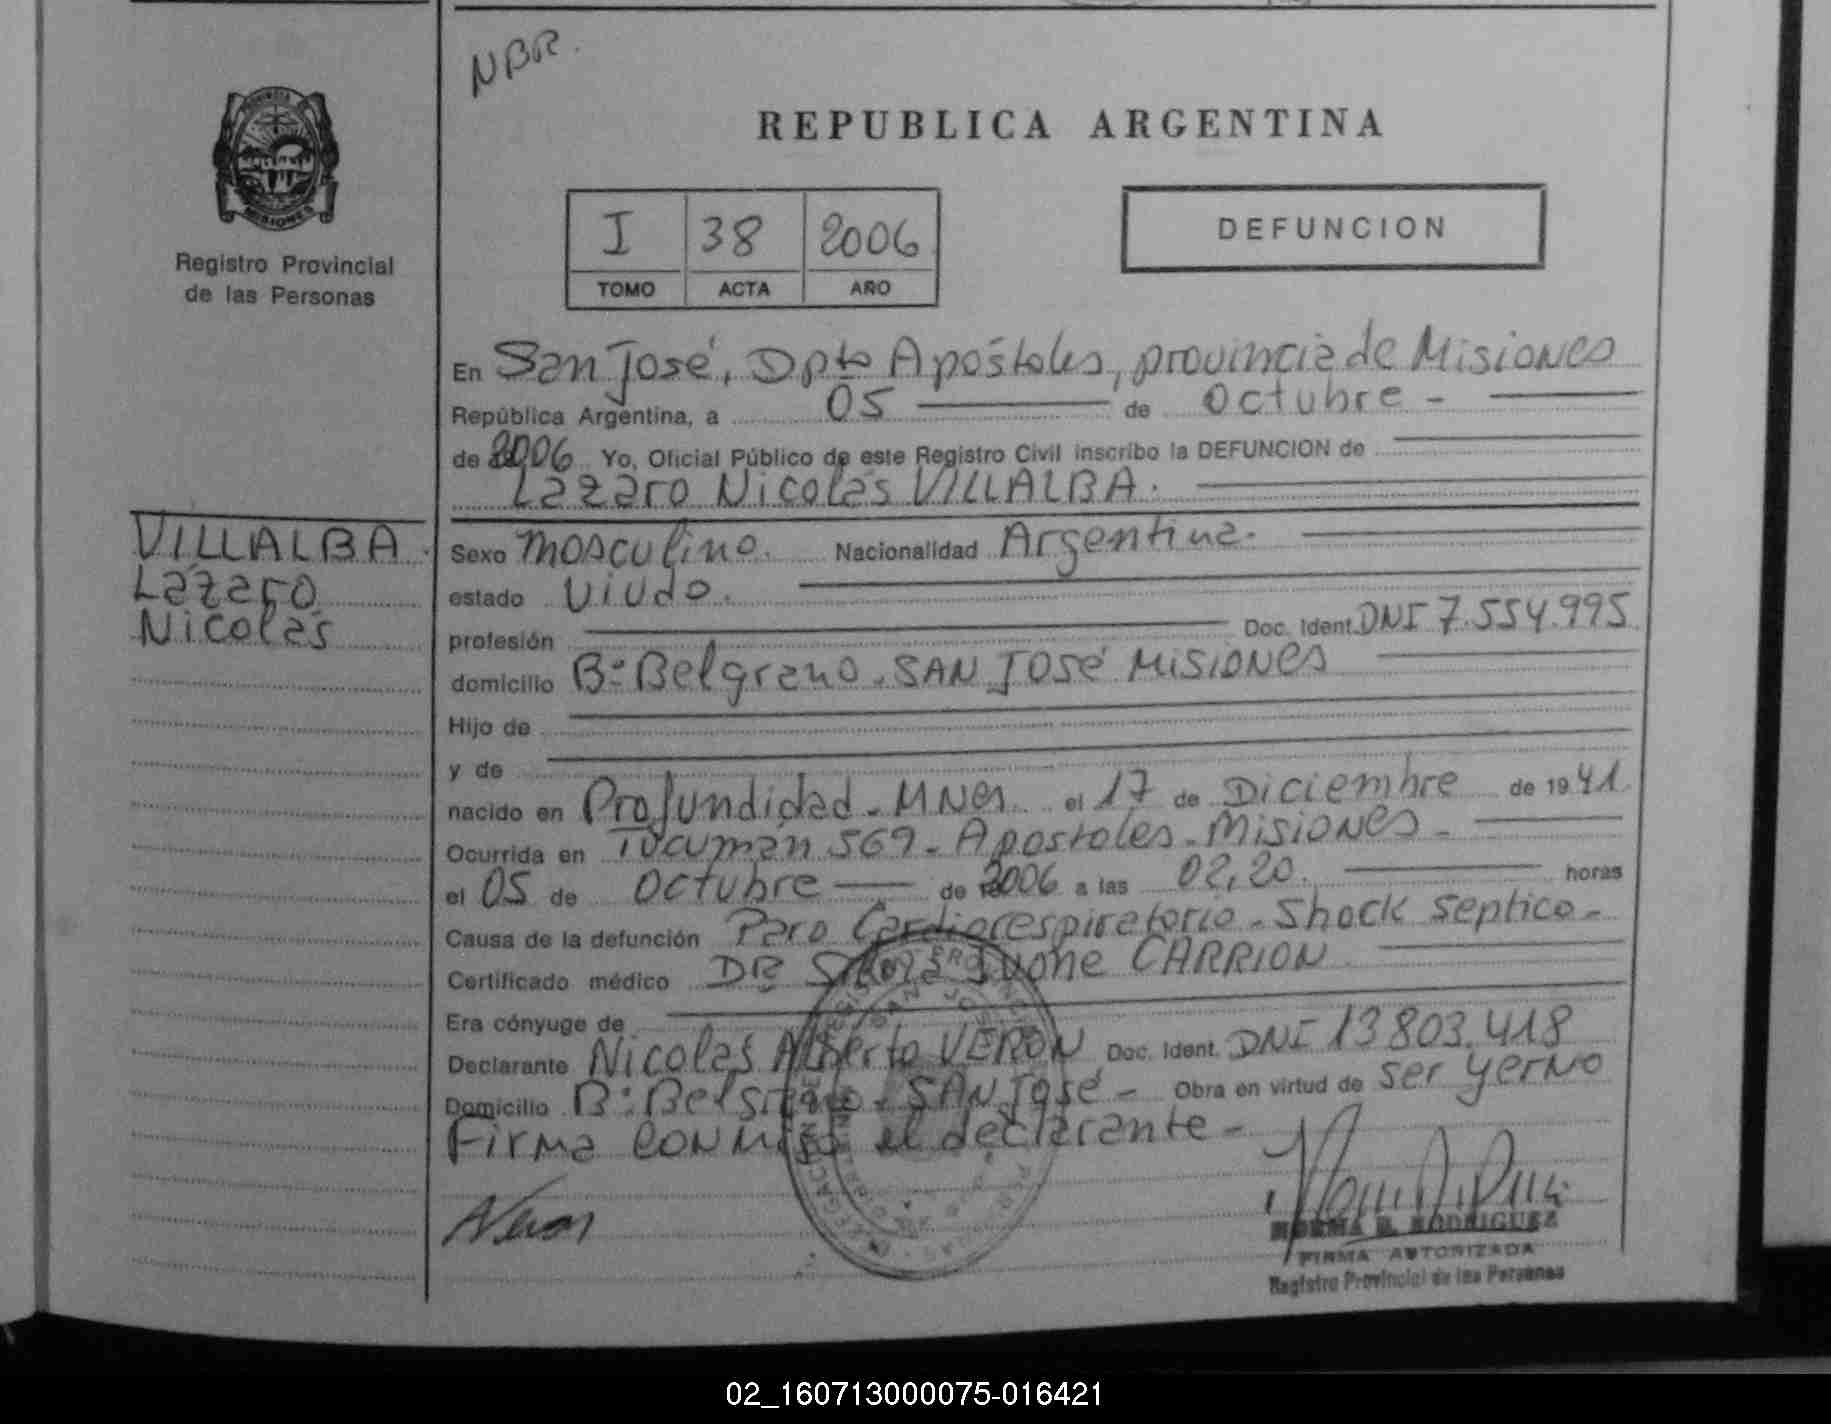 NBR.
REPUBLICA ARGENTINA
PROVINCIA
MISIONES
Registro Provincial
de las Personas
I 38 2006
TOMO ACTA AÑO
DEFUNCION
En San José, Dpto Apóstoles, provincia de Misiones
República Argentina, a 05 de Octubre -
de 2006 Yo, Oficial Público de este Registro Civil inscribo la DEFUNCION de
Lázaro Nicolás VILLALBA.
VILLALBA.
Lázaro
Nicolás
Sexo masculino. Nacionalidad Argentina.
estado Viudo.
profesión Doc. Ident. DNI 7.554.995
domicilio Bº Belgrano - SAN JOSÉ MISIONES
Hijo de
y de
nacido en Profundidad - MNes. el 17 de Diciembre de 1941.
Ocurrida en Tucumán 569 - Apóstoles - Misiones -
el 05 de Octubre de 2006 a las 02,20. horas
Causa de la defunción Paro Cardiorespiratorio - Shock septico -
Certificado médico DR Ivone CARRION
Era cónyuge de
Declarante Nicolás Alberto VERON Doc. Ident. DNI 13803.418
Domicilio Bº Belgrano - SAN José - Obra en virtud de ser yerno
Firma conmigo el declarante -
NORMA B. RODRIGUEZ
FIRMA AUTORIZADA
Registro Provincial de las Personas
02_160713000075-016421